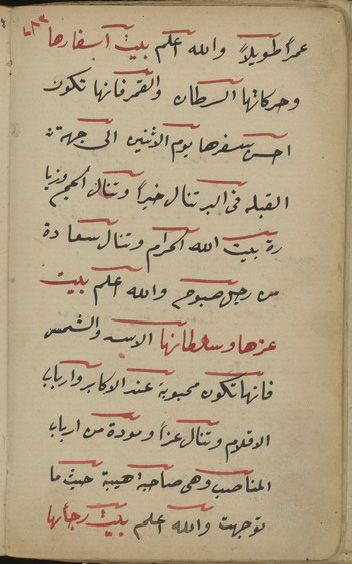 عمراً طويلاً والله اعلم بيت اسفارها
وحركاتها السرطان والقمر فانها تكون
احسن سفرها يوم الاثنين الى جهة
القبله فى البر تنال خيراً وتنال الحج وزيا
رة بيت الله الحرام وتنال سعادة
من رجل صبوح والله اعلم بيت
عزها وسلطانها الاسد والشمس
فانها تكون محبوبة عند الاكابر وارباب
الاقلام وتنال عزاً ومودة من ارباب
المناصب وهى صاحبة هيبة حيث ما
توجهت والله اعلم بيت رجائها